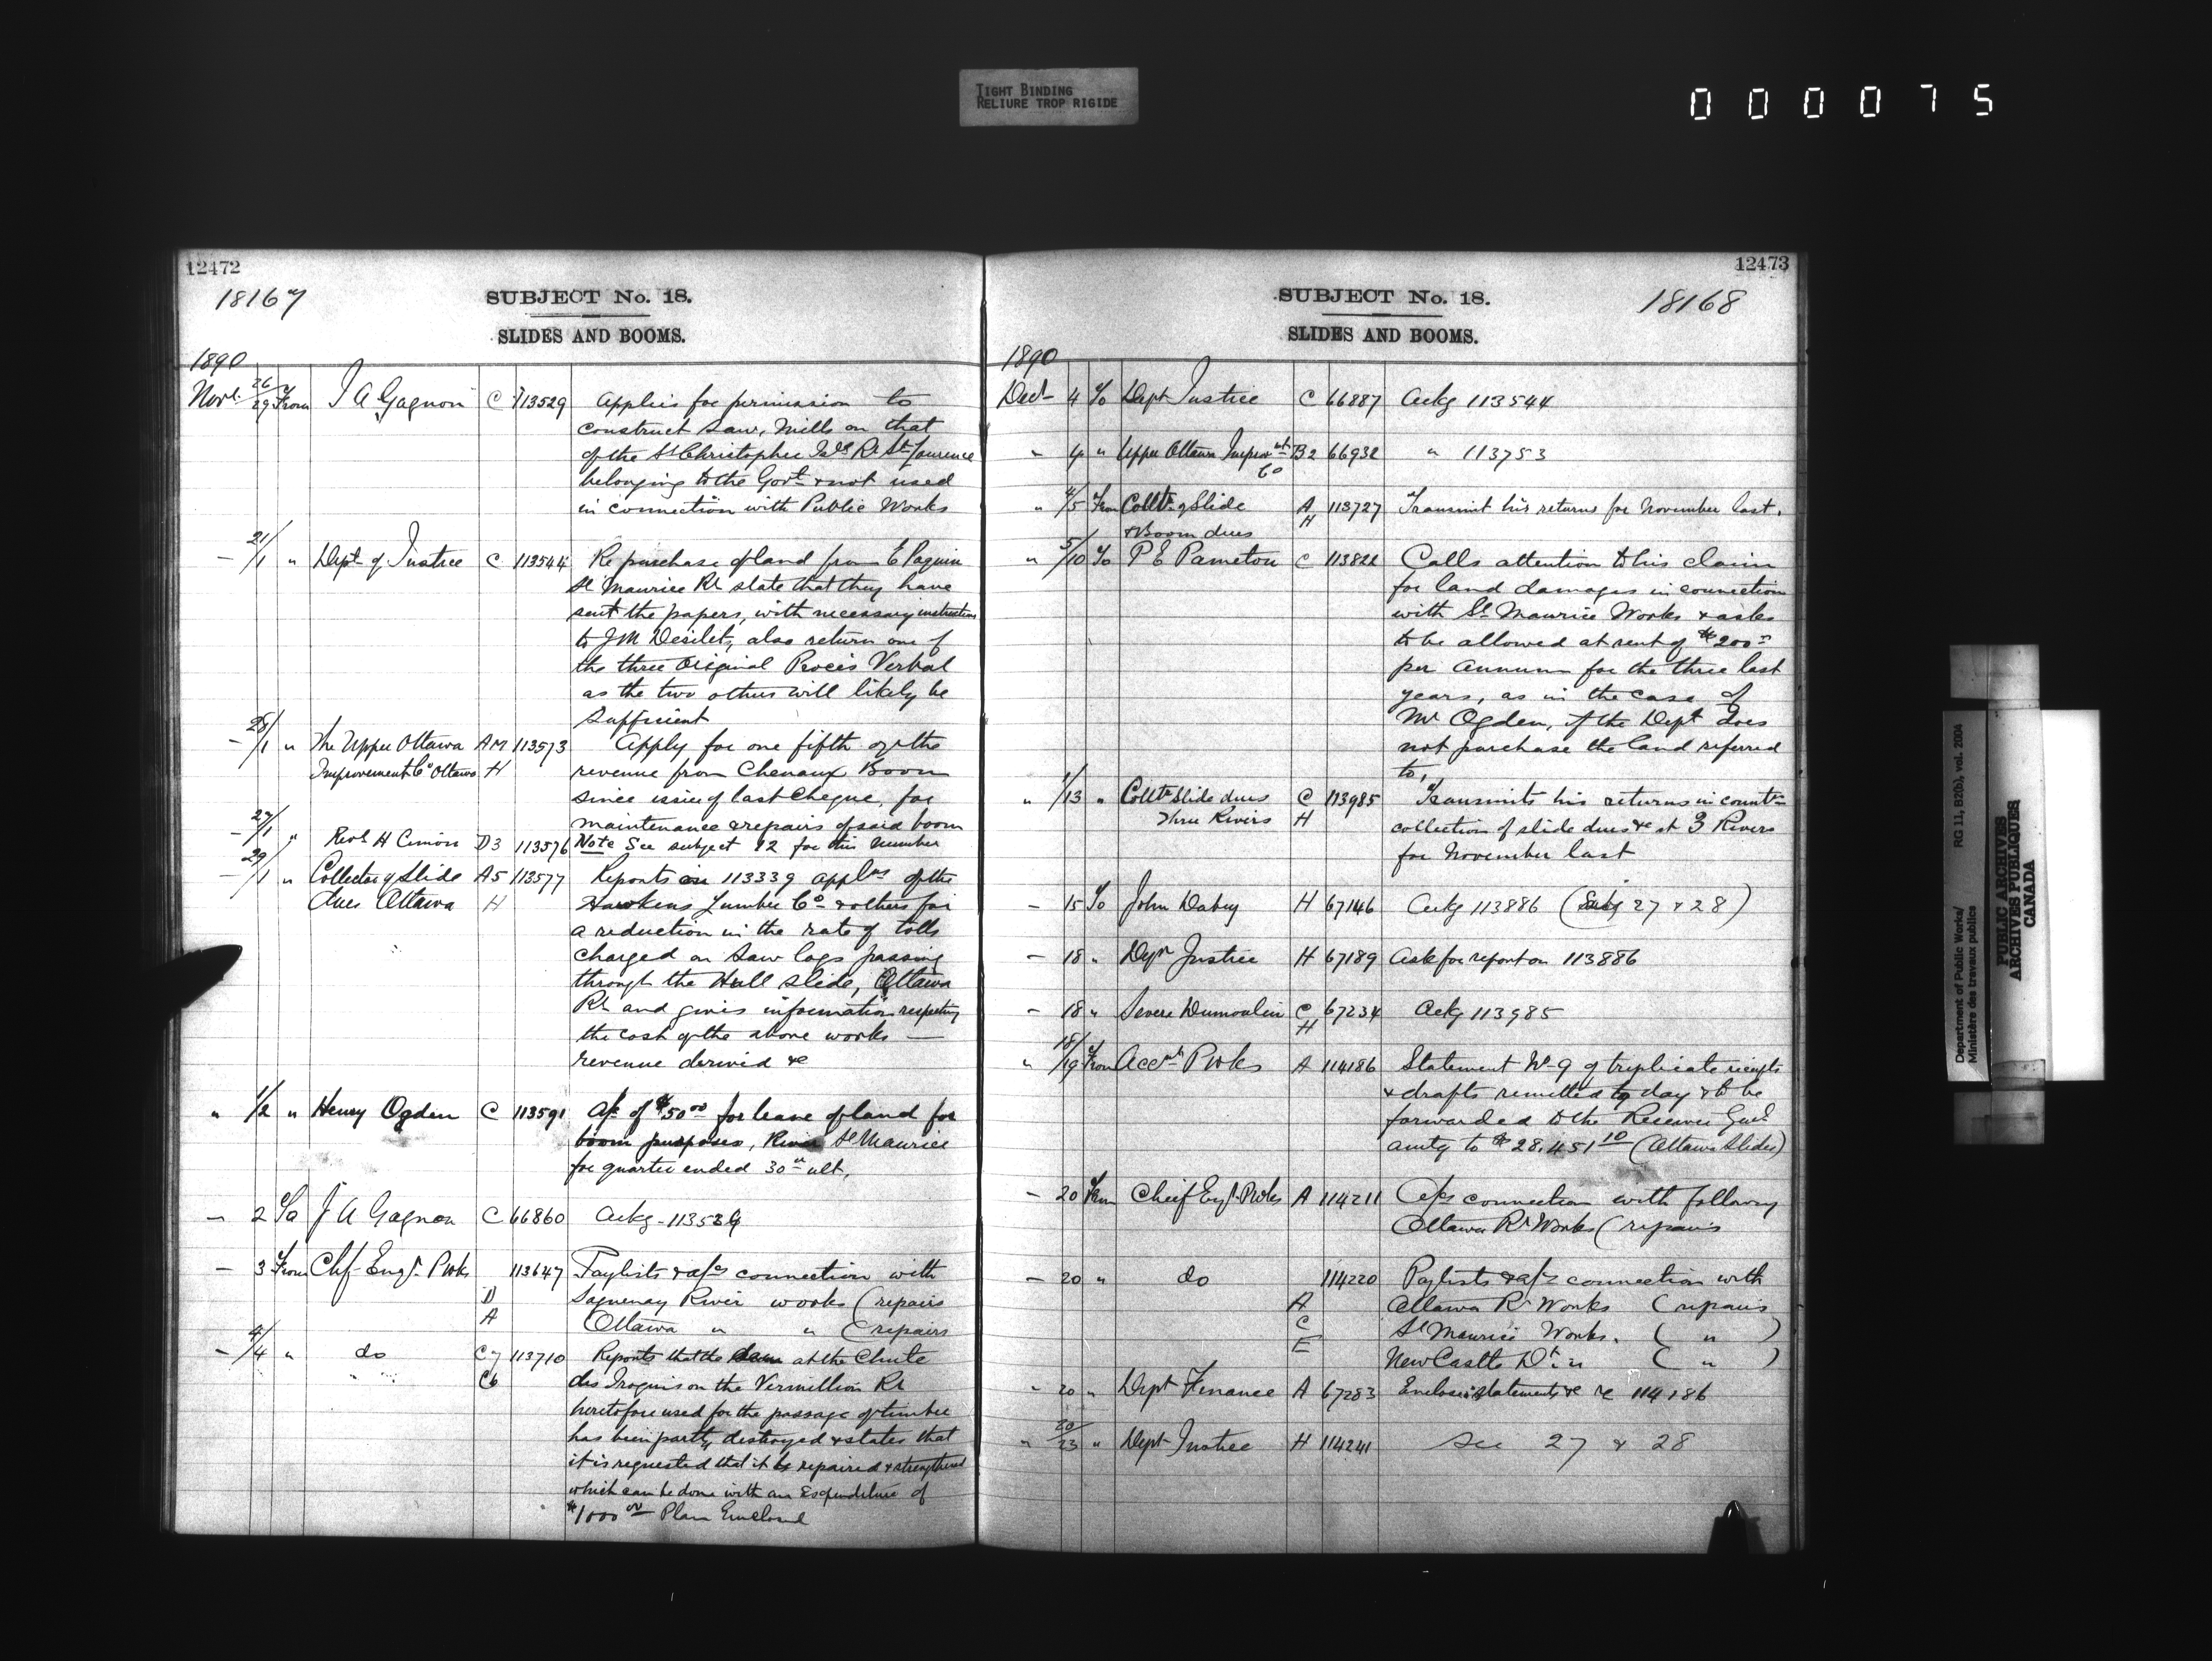 TIGHT BINDING
RELIURE TROP RIGIDE
0 0 0 0 7 5
12472
18167
SUBJECT No. 18.
SLIDES AND BOOMS.
1890
Novr. 26/29 From J A Gagnon C 113529 Applies for permission to
construct Saw Mills on that
of the St Christopher Isls Rr St Laurence
belonging to the Govt & not used
in connection with Public Works
— 21/1 " Dept of Justice C 113544 Re purchase of land from E Paquin
St Maurice Rr state that they have
sent the papers, with necessary instructions
to J M Desilets, also return one of
the three Original Procès Verbal
as the two others will likely be
sufficient
— 28/1 " The Upper Ottawa AM 113573 Apply for one fifth of the
Improvement Co Ottawa H revenue from Chenaux Boom
since issue of last Cheque, for
maintenance & repairs of said boom
— 27/1 " Revd H Cimon D3 113576 Note See subject 12 for this number
— 29/1 " Collector of Slide A5 113577 Reports on 113339 applns of the
dues Ottawa H Hawkins Lumber Co & others for
a reduction in the rate of tolls
charged on Saw logs passing
through the Hull Slide, Ottawa
Rr and gives information respecting
the cost of the above works —
revenue derived &c
" 1/2 " Henry Ogden C 113591 A/c of $50 00 for lease of land for
boom purposes, River St Maurice
for quarter ended 30th ult.
— 2 To J A Gagnon C 66860 Ackg - 113529
— 3 From Chf Engr P Wks 113647 Paylists & a/cs connection with
D Saguenay River works (repairs
A Ottawa " " (repairs
— 4/4 " do C7 113710 Reports that the dam at the Chute
C6 des Iroquois on the Vermillion Rr
heretofore used for the passage of timber
has been partly destroyed & states that
it is requested that it be repaired & strengthened
which can be done with an Expenditure of
$1000 00 Plan Enclosed
12473
SUBJECT No. 18.
18168
SLIDES AND BOOMS.
1890
Decr 4 To Dept Justice C 66887 Ackg 113544
" 4 " Upper Ottawa Improvmt B2 66932 " 113753
Co
" 4/5 From Colltr of Slide A 113727 Transmit his returns for November last.
& Boom dues H
" 5/10 To P E Pameton C 113822 Calls attention to his claim
for land damages in connection
with St Maurice Works & asks
to be allowed at rent of $200
per annum for the three last
years, as in the case of
Mr Ogden, if the Dept does
not purchase the land referred
to,
" 1/13 " Colltr Slide dues C 113985 Transmits his returns in
Three Rivers H collection of slide dues &c at 3 Rivers
for November last
— 15 To John H 67146 Ackg 113886 (Subj 27 & 28)
— 18 " Justice H 67189 Ask for report on 113886
— 18 " Severe Dumoulin C 67234 Ackg 113985
H
" 18/19 From Acct P Wks A 114186 Statement No 9 of triplicate receipts
& drafts remitted to day & to be
forwarded to the Receiver Genl
amtg to $28,451 10 (Ottawa Slides)
— 20 From Chief Engr P Wks A 114211 A/cs connection with following
Ottawa Rr Works (repairs
— 20 " do 114220 Paylists & a/cs connection with
A Ottawa Rr Works (repairs
C St Maurice Works. ( " )
E New Castle Dt " ( " )
" 20 " Dept Finance A 67283 Enclose statements &c re 114186
" 20/23 " Dept Justice H 114241 See 27 & 28
Department of Public Works/
Ministère des travaux publics
RG 11, B2(b), vol. 2004
PUBLIC ARCHIVES
ARCHIVES PUBLIQUES
CANADA